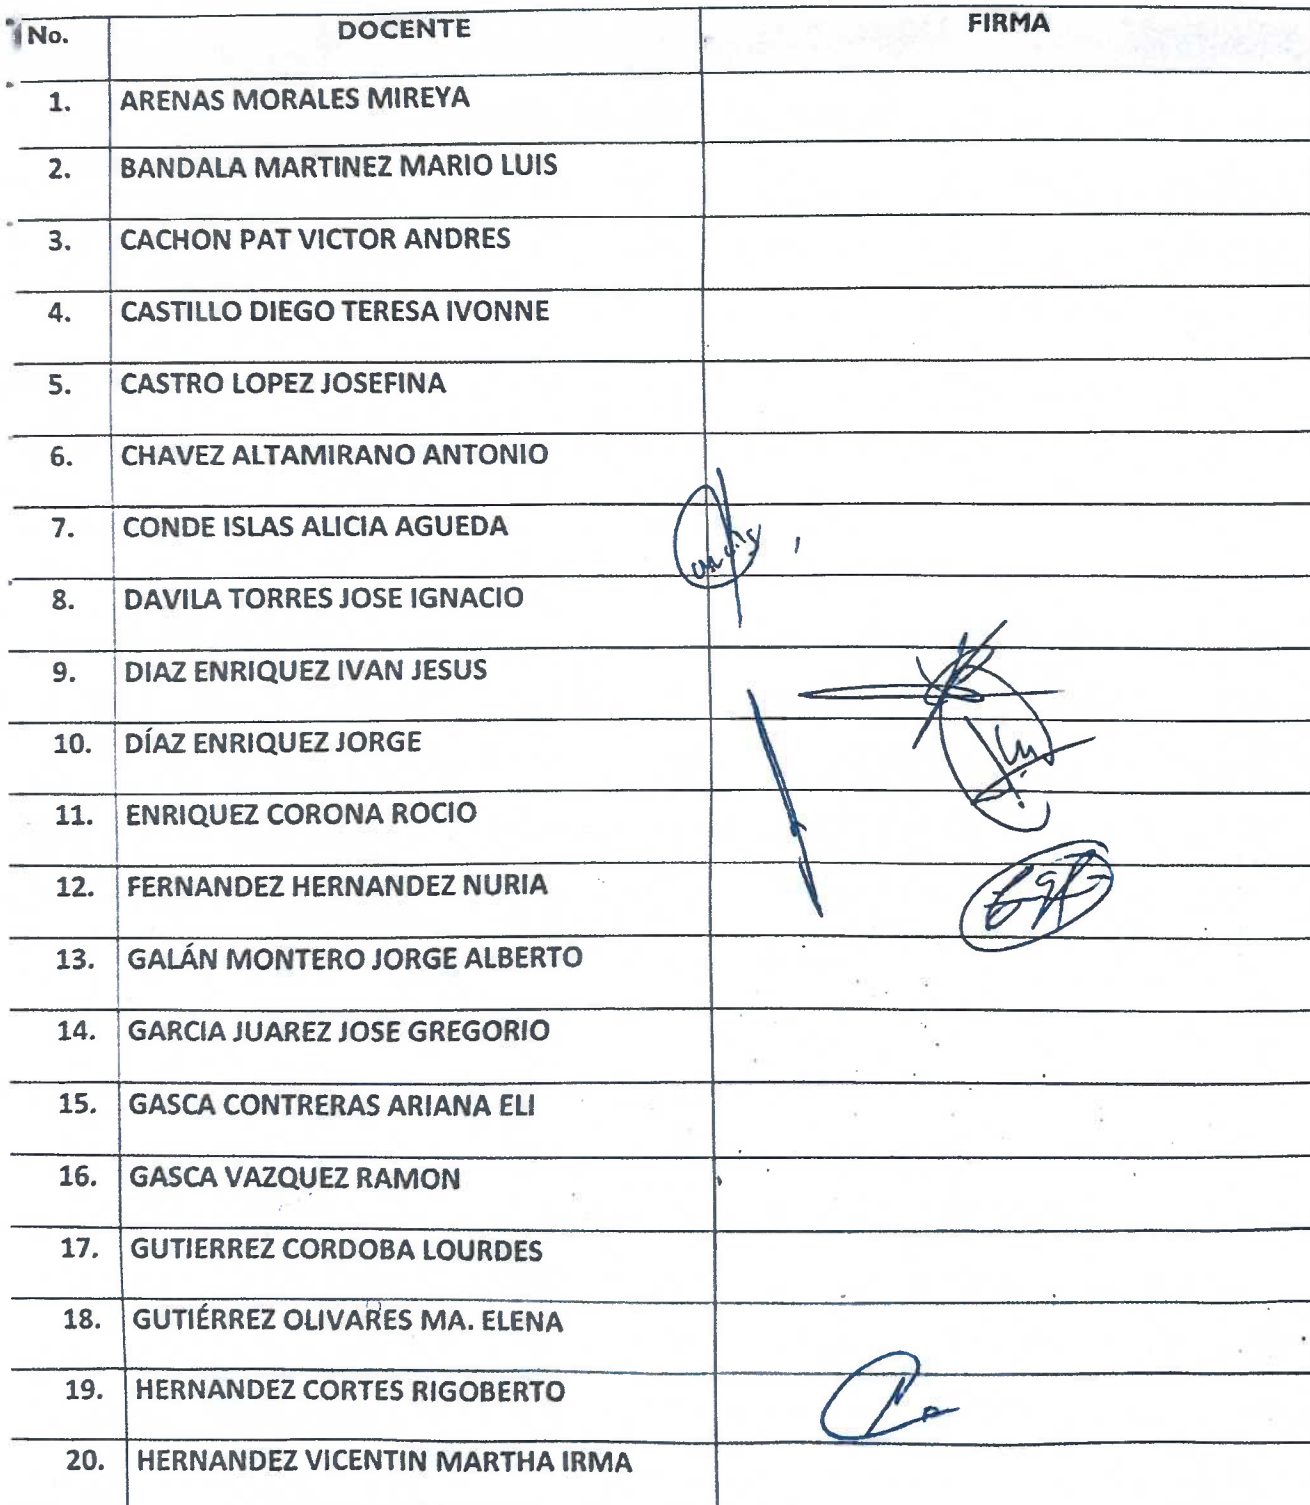 No. DOCENTE FIRMA
1. ARENAS MORALES MIREYA
2. BANDALA MARTINEZ MARIO LUIS
3. CACHON PAT VICTOR ANDRES
4. CASTILLO DIEGO TERESA IVONNE
5. CASTRO LOPEZ JOSEFINA
6. CHAVEZ ALTAMIRANO ANTONIO
7. CONDE ISLAS ALICIA AGUEDA
8. DAVILA TORRES JOSE IGNACIO
9. DIAZ ENRIQUEZ IVAN JESUS
10. DÍAZ ENRIQUEZ JORGE
11. ENRIQUEZ CORONA ROCIO
12. FERNANDEZ HERNANDEZ NURIA
13. GALÁN MONTERO JORGE ALBERTO
14. GARCIA JUAREZ JOSE GREGORIO
15. GASCA CONTRERAS ARIANA ELI
16. GASCA VAZQUEZ RAMON
17. GUTIERREZ CORDOBA LOURDES
18. GUTIÉRREZ OLIVARES MA. ELENA
19. HERNANDEZ CORTES RIGOBERTO
20. HERNANDEZ VICENTIN MARTHA IRMA